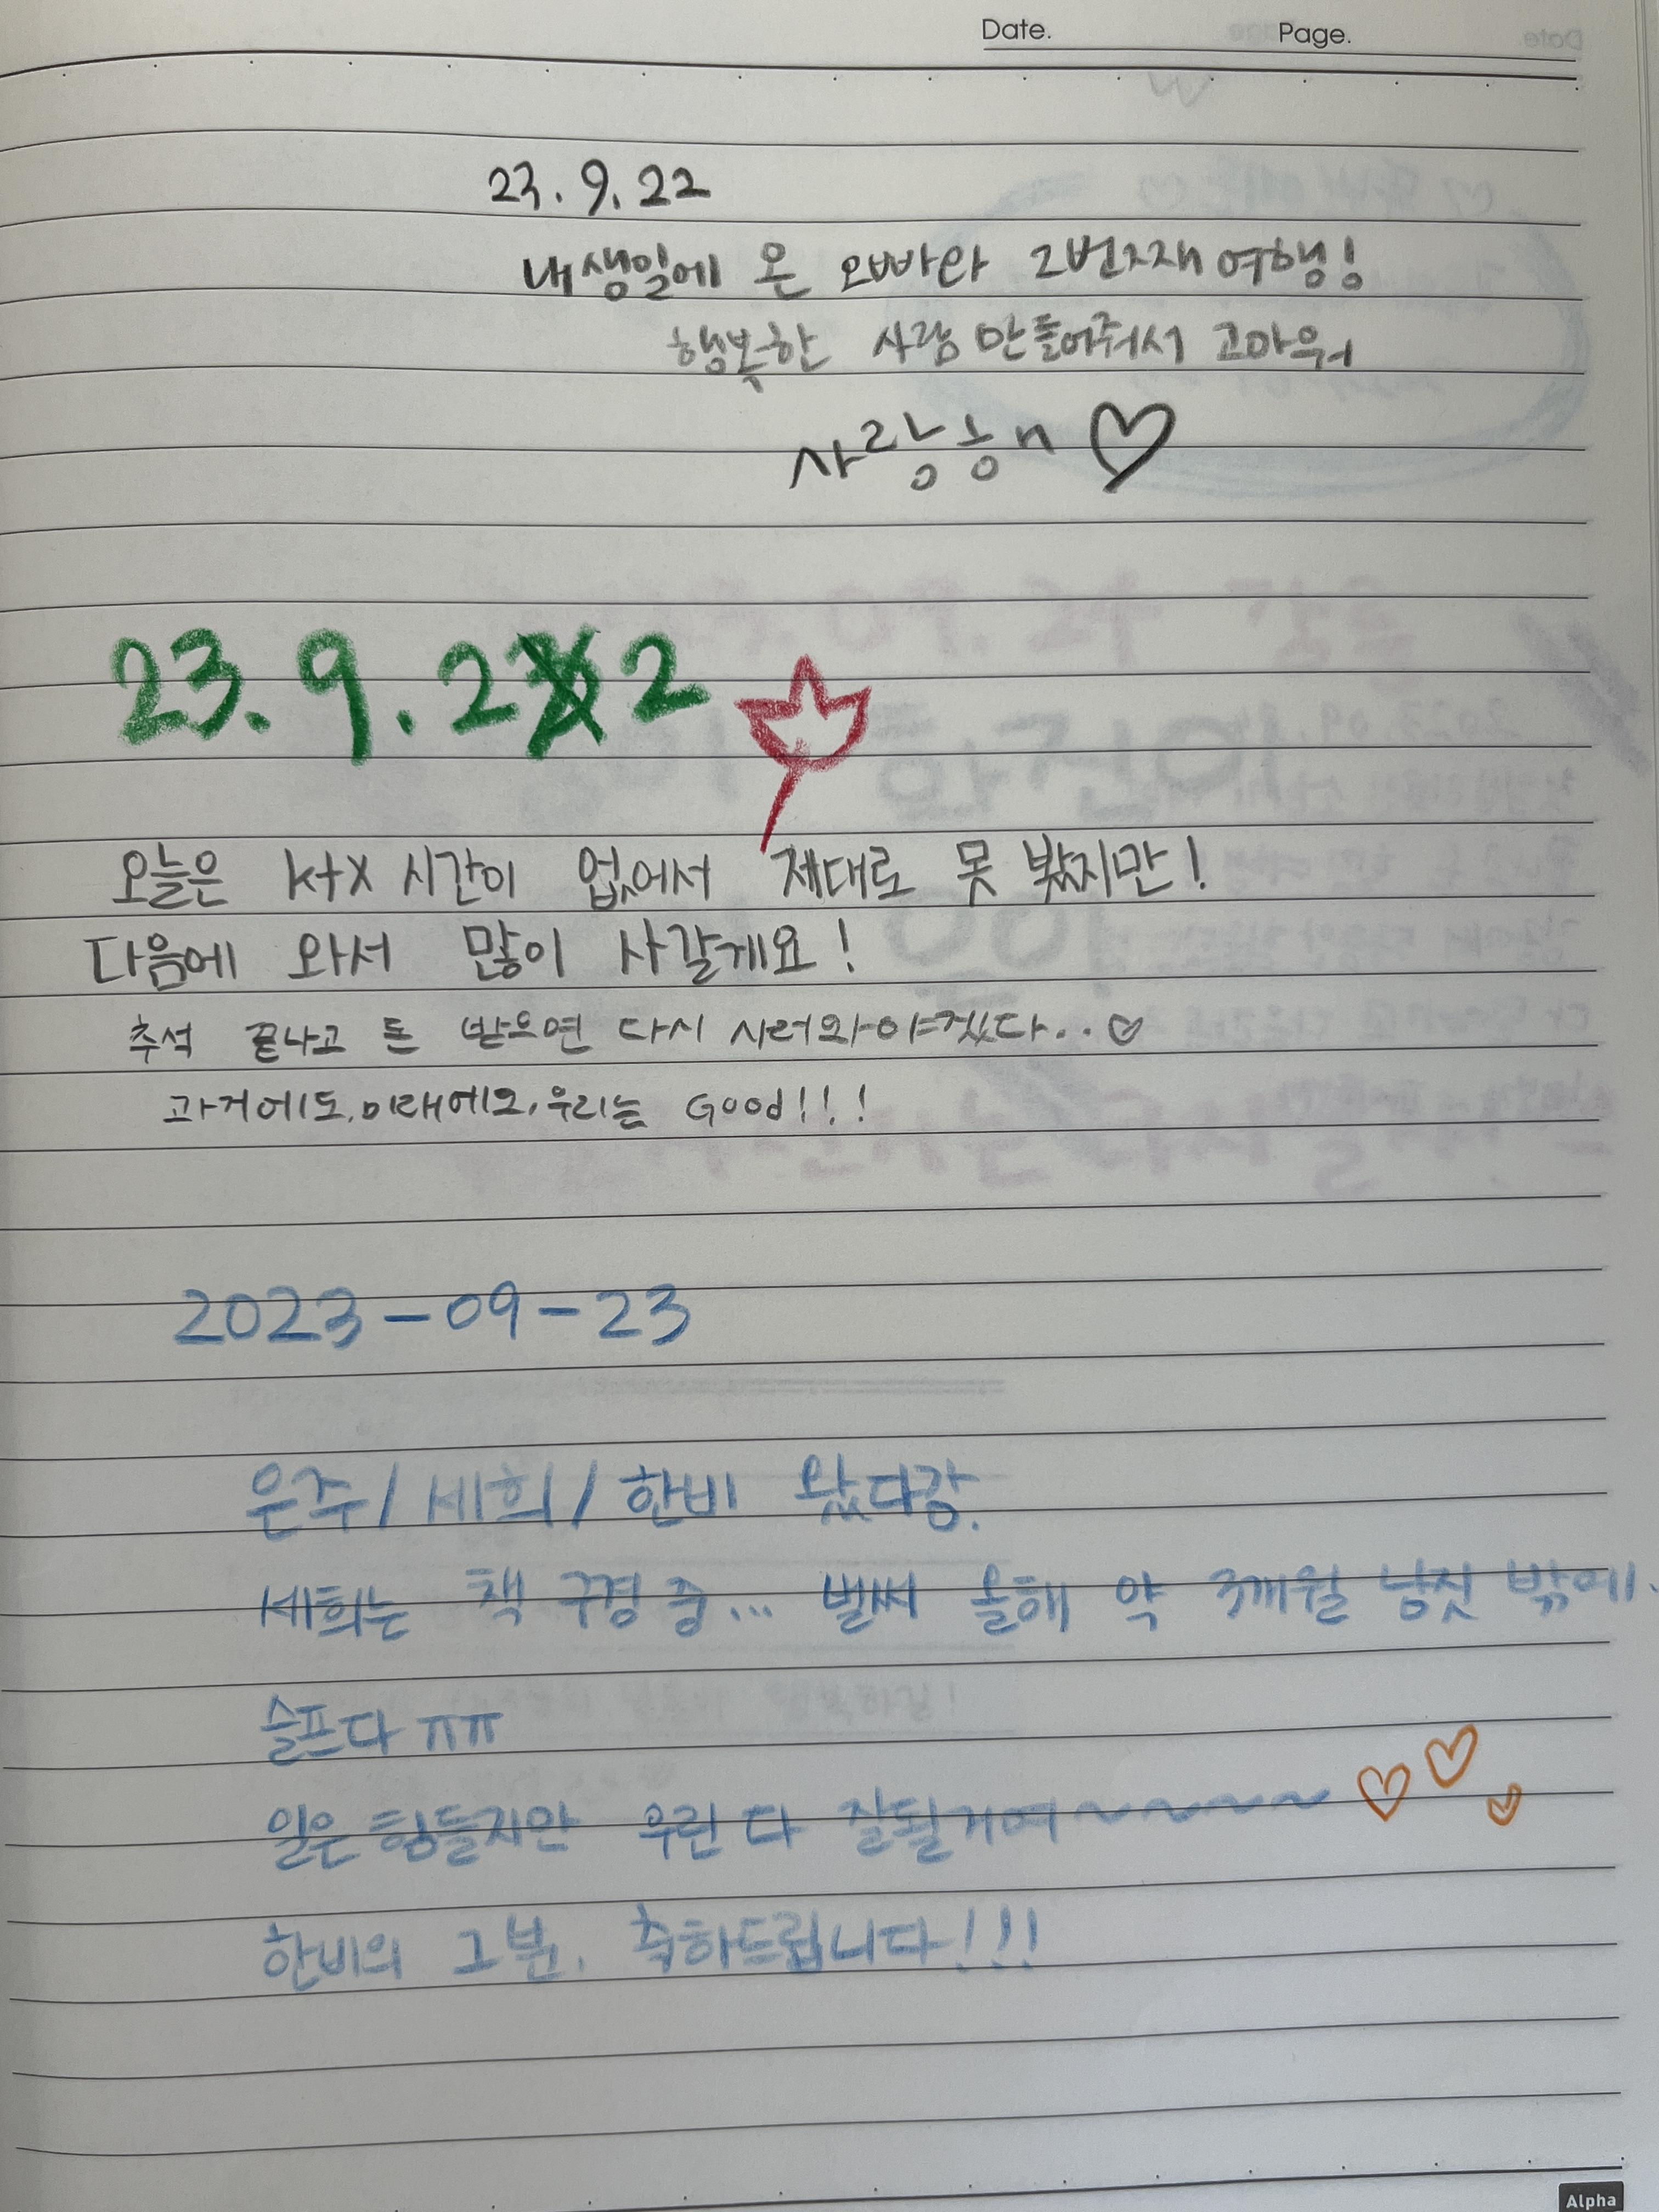 Date. Page.
23.9.22
내생일에 온 오빠랑 2번째 여행!
행복한 사람 만들어줘서 고마워
사랑해 ♡
23.9.22
오늘은 ktx 시간이 없어서 제대로 못 봤지만!
다음에 와서 많이 사갈게요!
추석 끝나고 돈 받으면 다시 사러와야겠다..♡
과거에도, 미래에오, 우리는 Good!!!
2023-09-23
은주/세희/한비 왔다강.
세희는 책 구경 중... 벌써 올해 약 3개월 남짓 밖에.
슬프다 ㅠㅠ
일은 힘들지만 우린 다 잘될거여~~~~~ ♡♡♡
한비의 그분. 축하드립니다!!!
Alpha